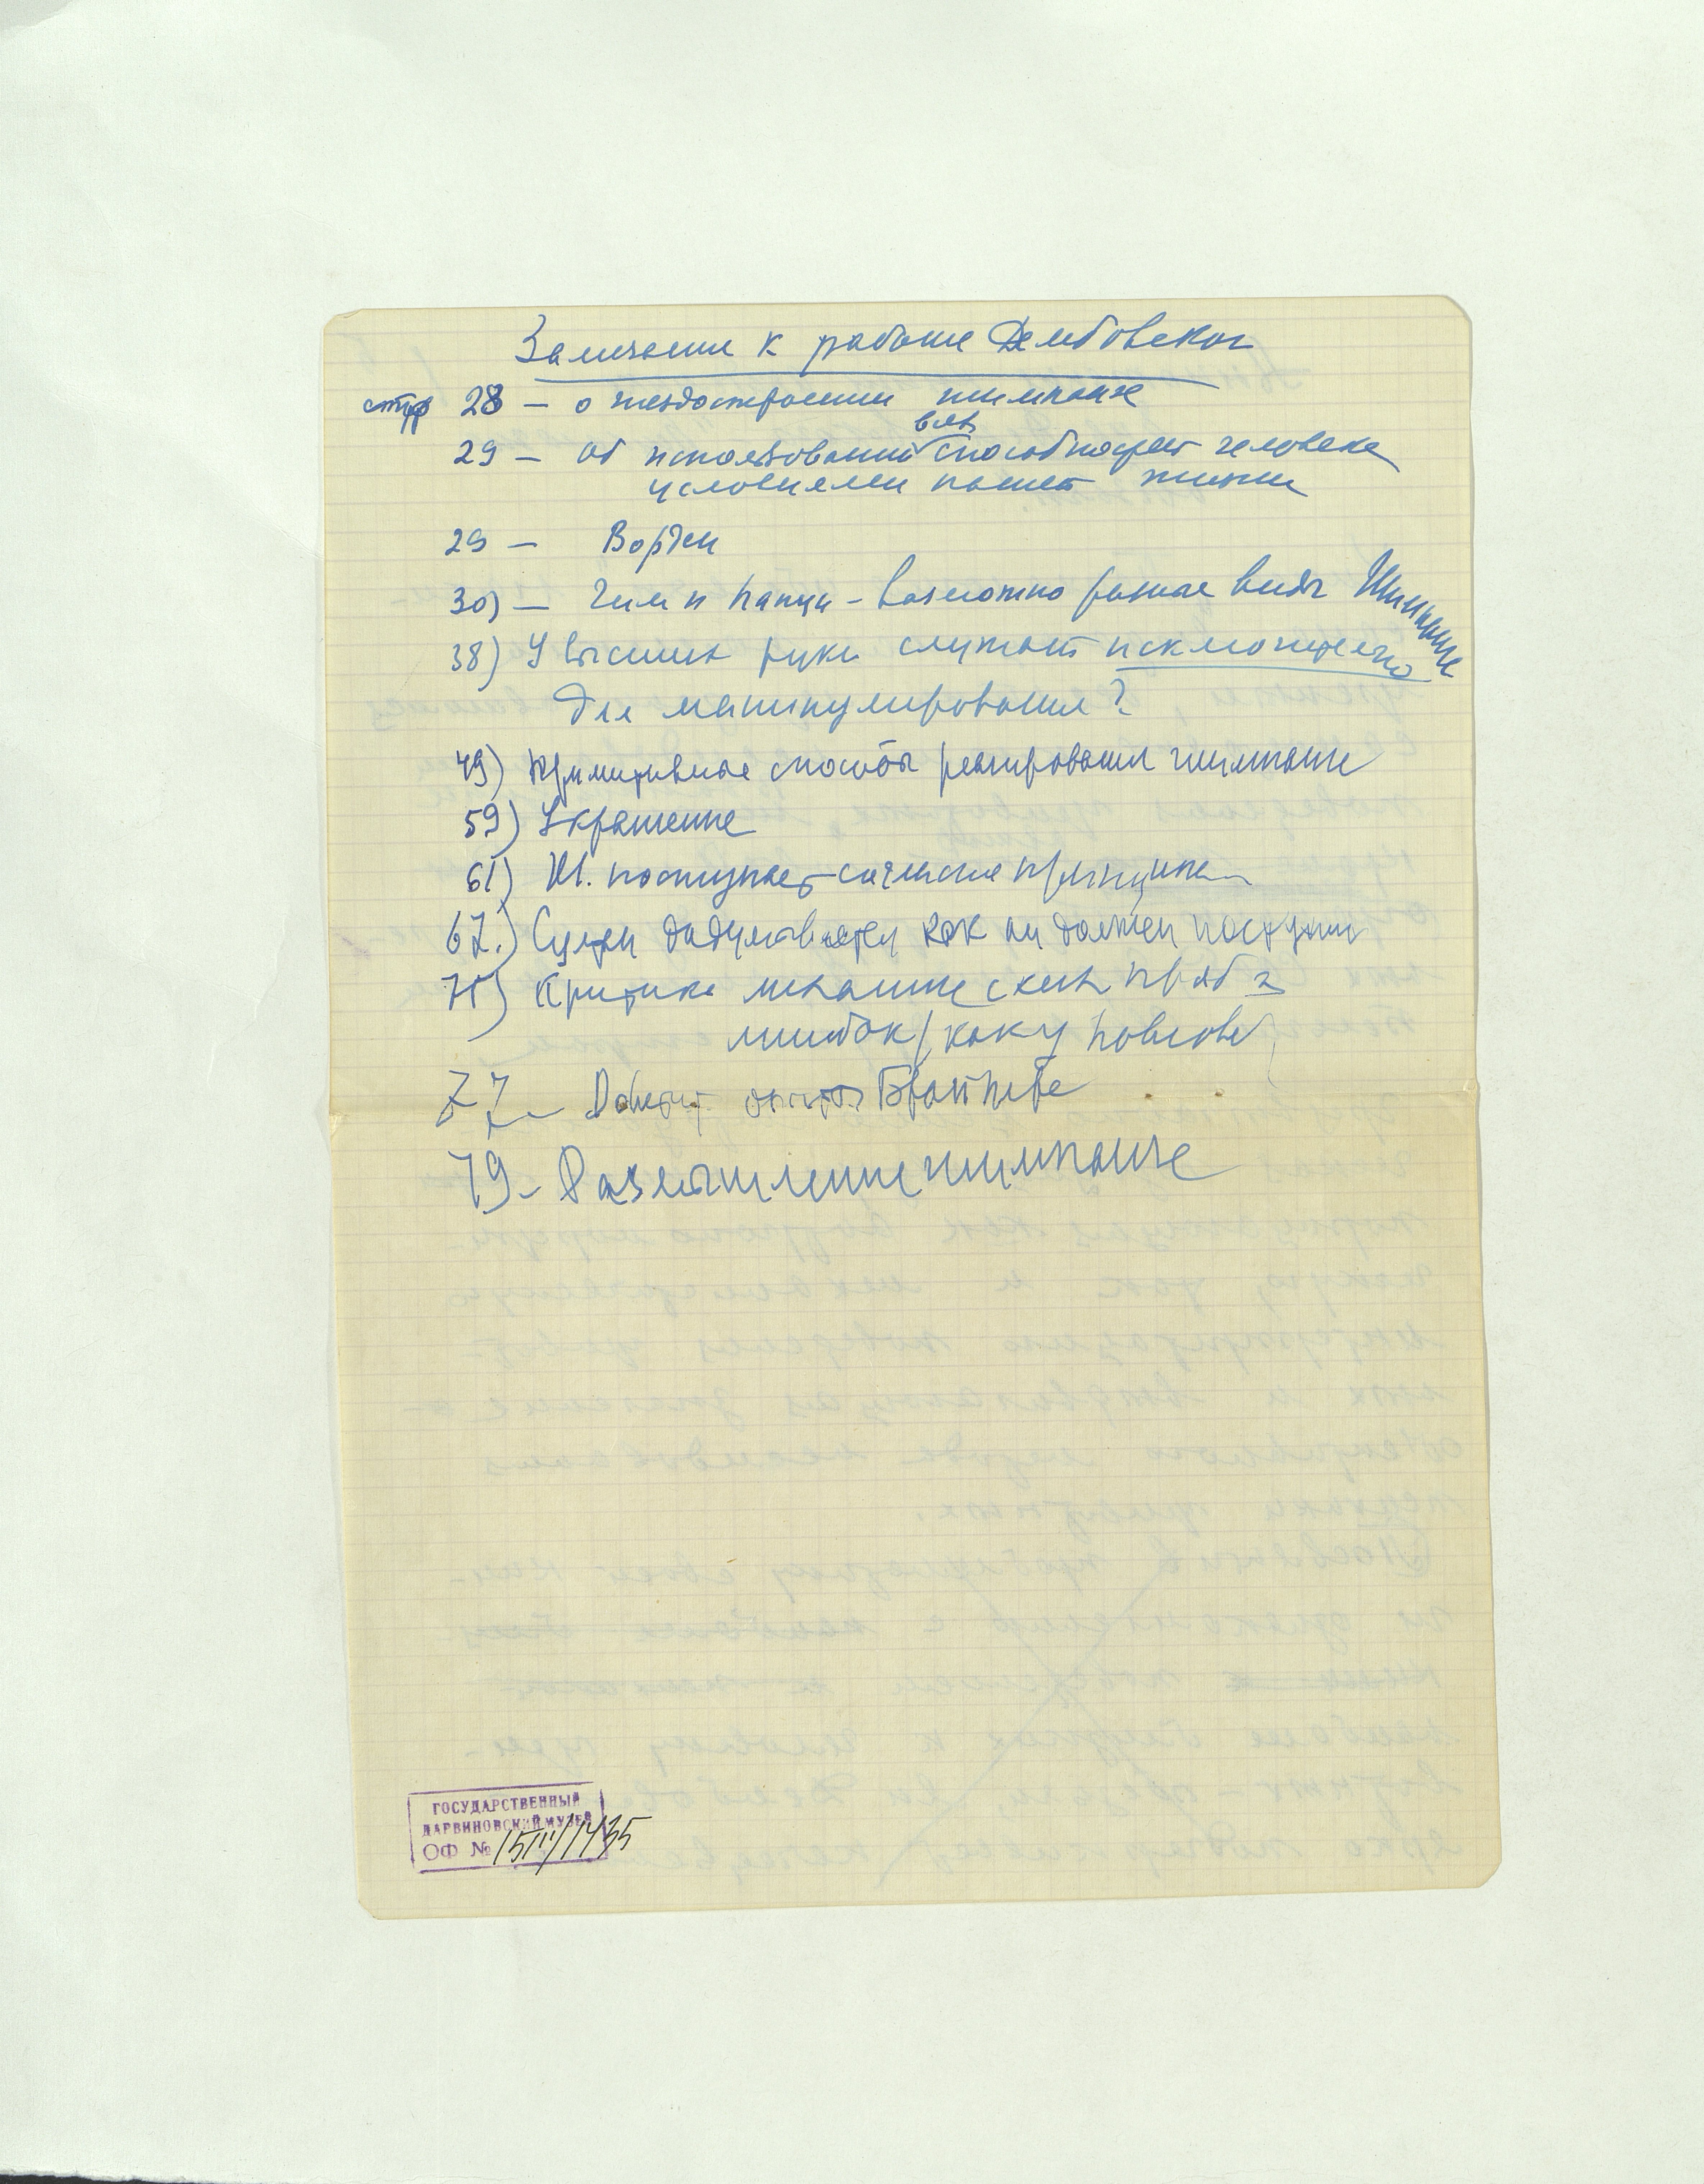 Замечания к работе Дембовского
стр 28 — о гнездостроении шимпанзе
всех
29 — об использовании способностей человека
условиями нашей жизни
29 — Вортен
30) — Чим и Панци - возможно разные виды Шимпанзе
38) У высших руки служат исключительно
для манипулирования?
49) Примитивные способы реагирования шимпанзе
59) Украшение
61) Ш. поступает согласно принципа
67.) Султан додумывается как он должен поступить
71) Критика механистческих проб и
ошибок / каку Павлова
77 — опыты
79 - Размышление шимпанзе
ГОСУДАРСТВЕННЫЙ
ДАРВИНОВСКИЙ МУЗЕЙ
ОФ №